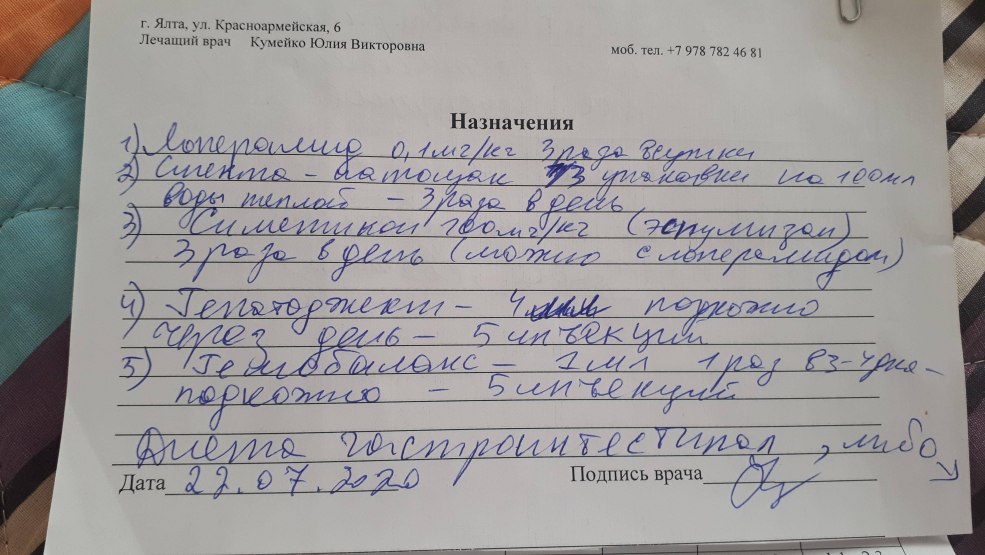 г. Ялта, ул. Красноармейская, 6
Лечащий врач Кумейко Юлия Викторовна
моб. тел. +7 978 782 46 81
Назначения
1) Лоперамид 0,1мг/кг 3 раза в сутки
2) Смекта – натощак 1/3 упаковки на 100мл
воды теплой – 3 раза в день
3) Симетикон 100мг/кг (эспумизан)
3 раза в день (можно с лоперамидом)
4) Гепатоджект – 4 подкожно
через день – 5 инъекций
5) Гемобаланс – 1мл 1 раз в 3-4 дня –
подкожно – 5 инъекций
Диета гастроинтестинал, либо
Дата 22.07.2020 Подпись врача